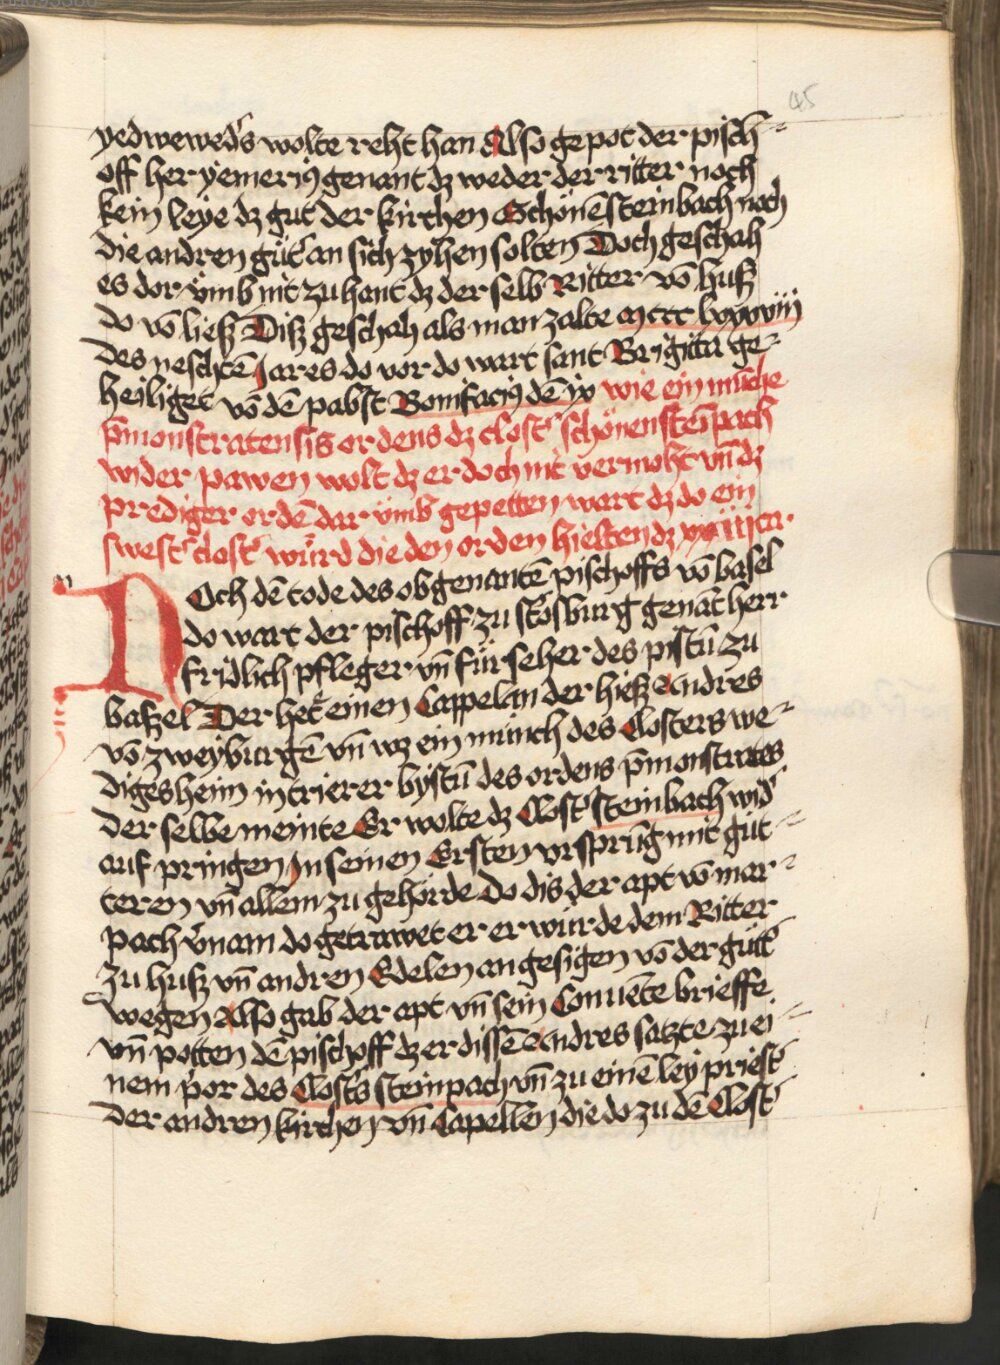 45
yedweweds wolte reht han Also gepot der pisch-
off her yemerius genant dz weder der ritter noch
kein leye dz gut der kirchen Schönēsteinbach noch
die andren güt an sich zyhen solten Doch geschah
es dor vmb nit zu hant dz der selb Ritter vō husz
do vō liesz Disz geschah als man zalte mccc lxxxviij
des neschtē Jares do vor do wart sant Brigitta ge-
heiliget vō dē pabst Bonifacius dē ix wie ein münche
p̄monstratensis ordens dz clost schönensteīpach
wider pawen wolt dz er doch nit vermoht vn̄ dz
prediger ordē dar vmb gepetten wart dz do ein
swest clost würd die den orden hielten dz
Noch dē tode des obgenantē pischoffs vō basel
do wart der pischoff zu strosburg genāt herr
fridlich pfleger vn̄ für seher des pistū zu
baszel Der het einen Cappelan der hiesz Andres
vō zweyburgē vn̄ wz ein münch des Closters we-
digesheim in trierer bystū des ordens p̄monstrates
der selbe meinte Er wolte dz Clost steinbach wid
auf pringen Jn seinen Ersten vrsprūg mit güt-
teren vn̄ allem zu gehörde Do dis der apt vō mar-
pach v̄nam do getrawet er er würde dem Ritter
zu husz vn̄ andren Edelen an gesigen vō der güt
wegen Also gab der apt vn̄ sein Conuente brieffe
vn̄ potten dē pischoff dz er dissē Andres satzte zu ei-
nem p̄or des Closts steinpach vn̄ zu einē ley priest
der andren kirchen vn̄ Capellen die do zu dē Clost